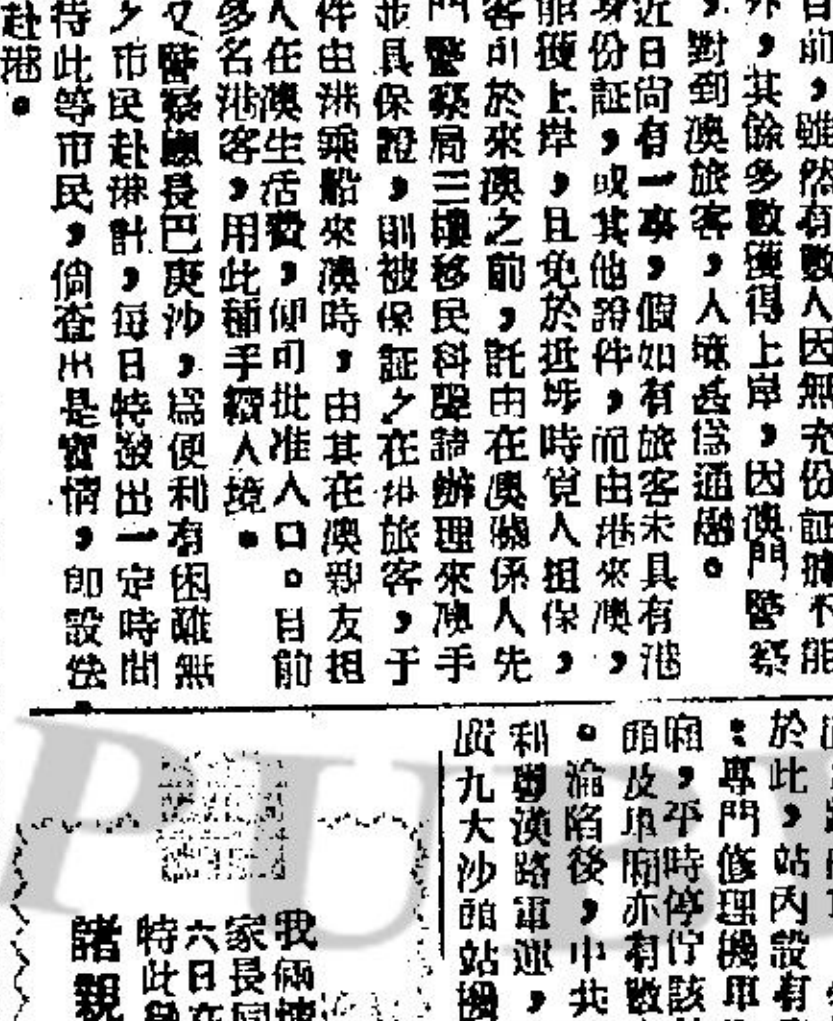 目前，雖然有數人因無充份証據不能
外，其餘多數獲得上岸，因澳門警察
，對到澳旅客，入境甚為通融。
近日尚有一事，假如有旅客未具有港
身份証，或其他證件，而由港來澳，
能獲上岸，且免於抵埗時覓人担保，
客可於來澳之前，託由在澳關係人先
門警察局三樓移民科聲請辦理來澳手
並具保證，則被保証之在港旅客，于
件由港乘船來澳時，由其在澳親友担
人在澳生活費，即可批准入口。目前
多名港客，用此種手續入境。
又警察廳長巴庚沙，為便利有困難無
之市民赴港計，每日特撥出一定時間
待此等市民，倘查出是實情，即設法
赴港。
於此，站內設有
：專門修理機車
廂，平時停佇該
頭及車廂亦有數
。淪陷後，中共
利粵漢路軍運，
廣九大沙頭站機
我倆
家長同
六日在
特此
諸親
PUB